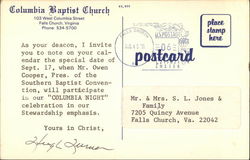 Columbia Baptist Church
103 West Columbia Street
Falls Church, Virginia
Phone 534-5700
As your deacon, I invite
you to note on your cal-
endar the special date of
Sept. 17, when Mr. Owen
Cooper, Pres. of the
Southern Baptist Conven-
tion, will participate
in our "COLUMBIA NIGHT"
celebration in our
Stewardship emphasis.
Yours in Christ,
place
stamp
here
postcard
Mr. & Mrs. S. L. Jones &
Family
7205 Quincy Avenue
Falls Church, Va. 22042